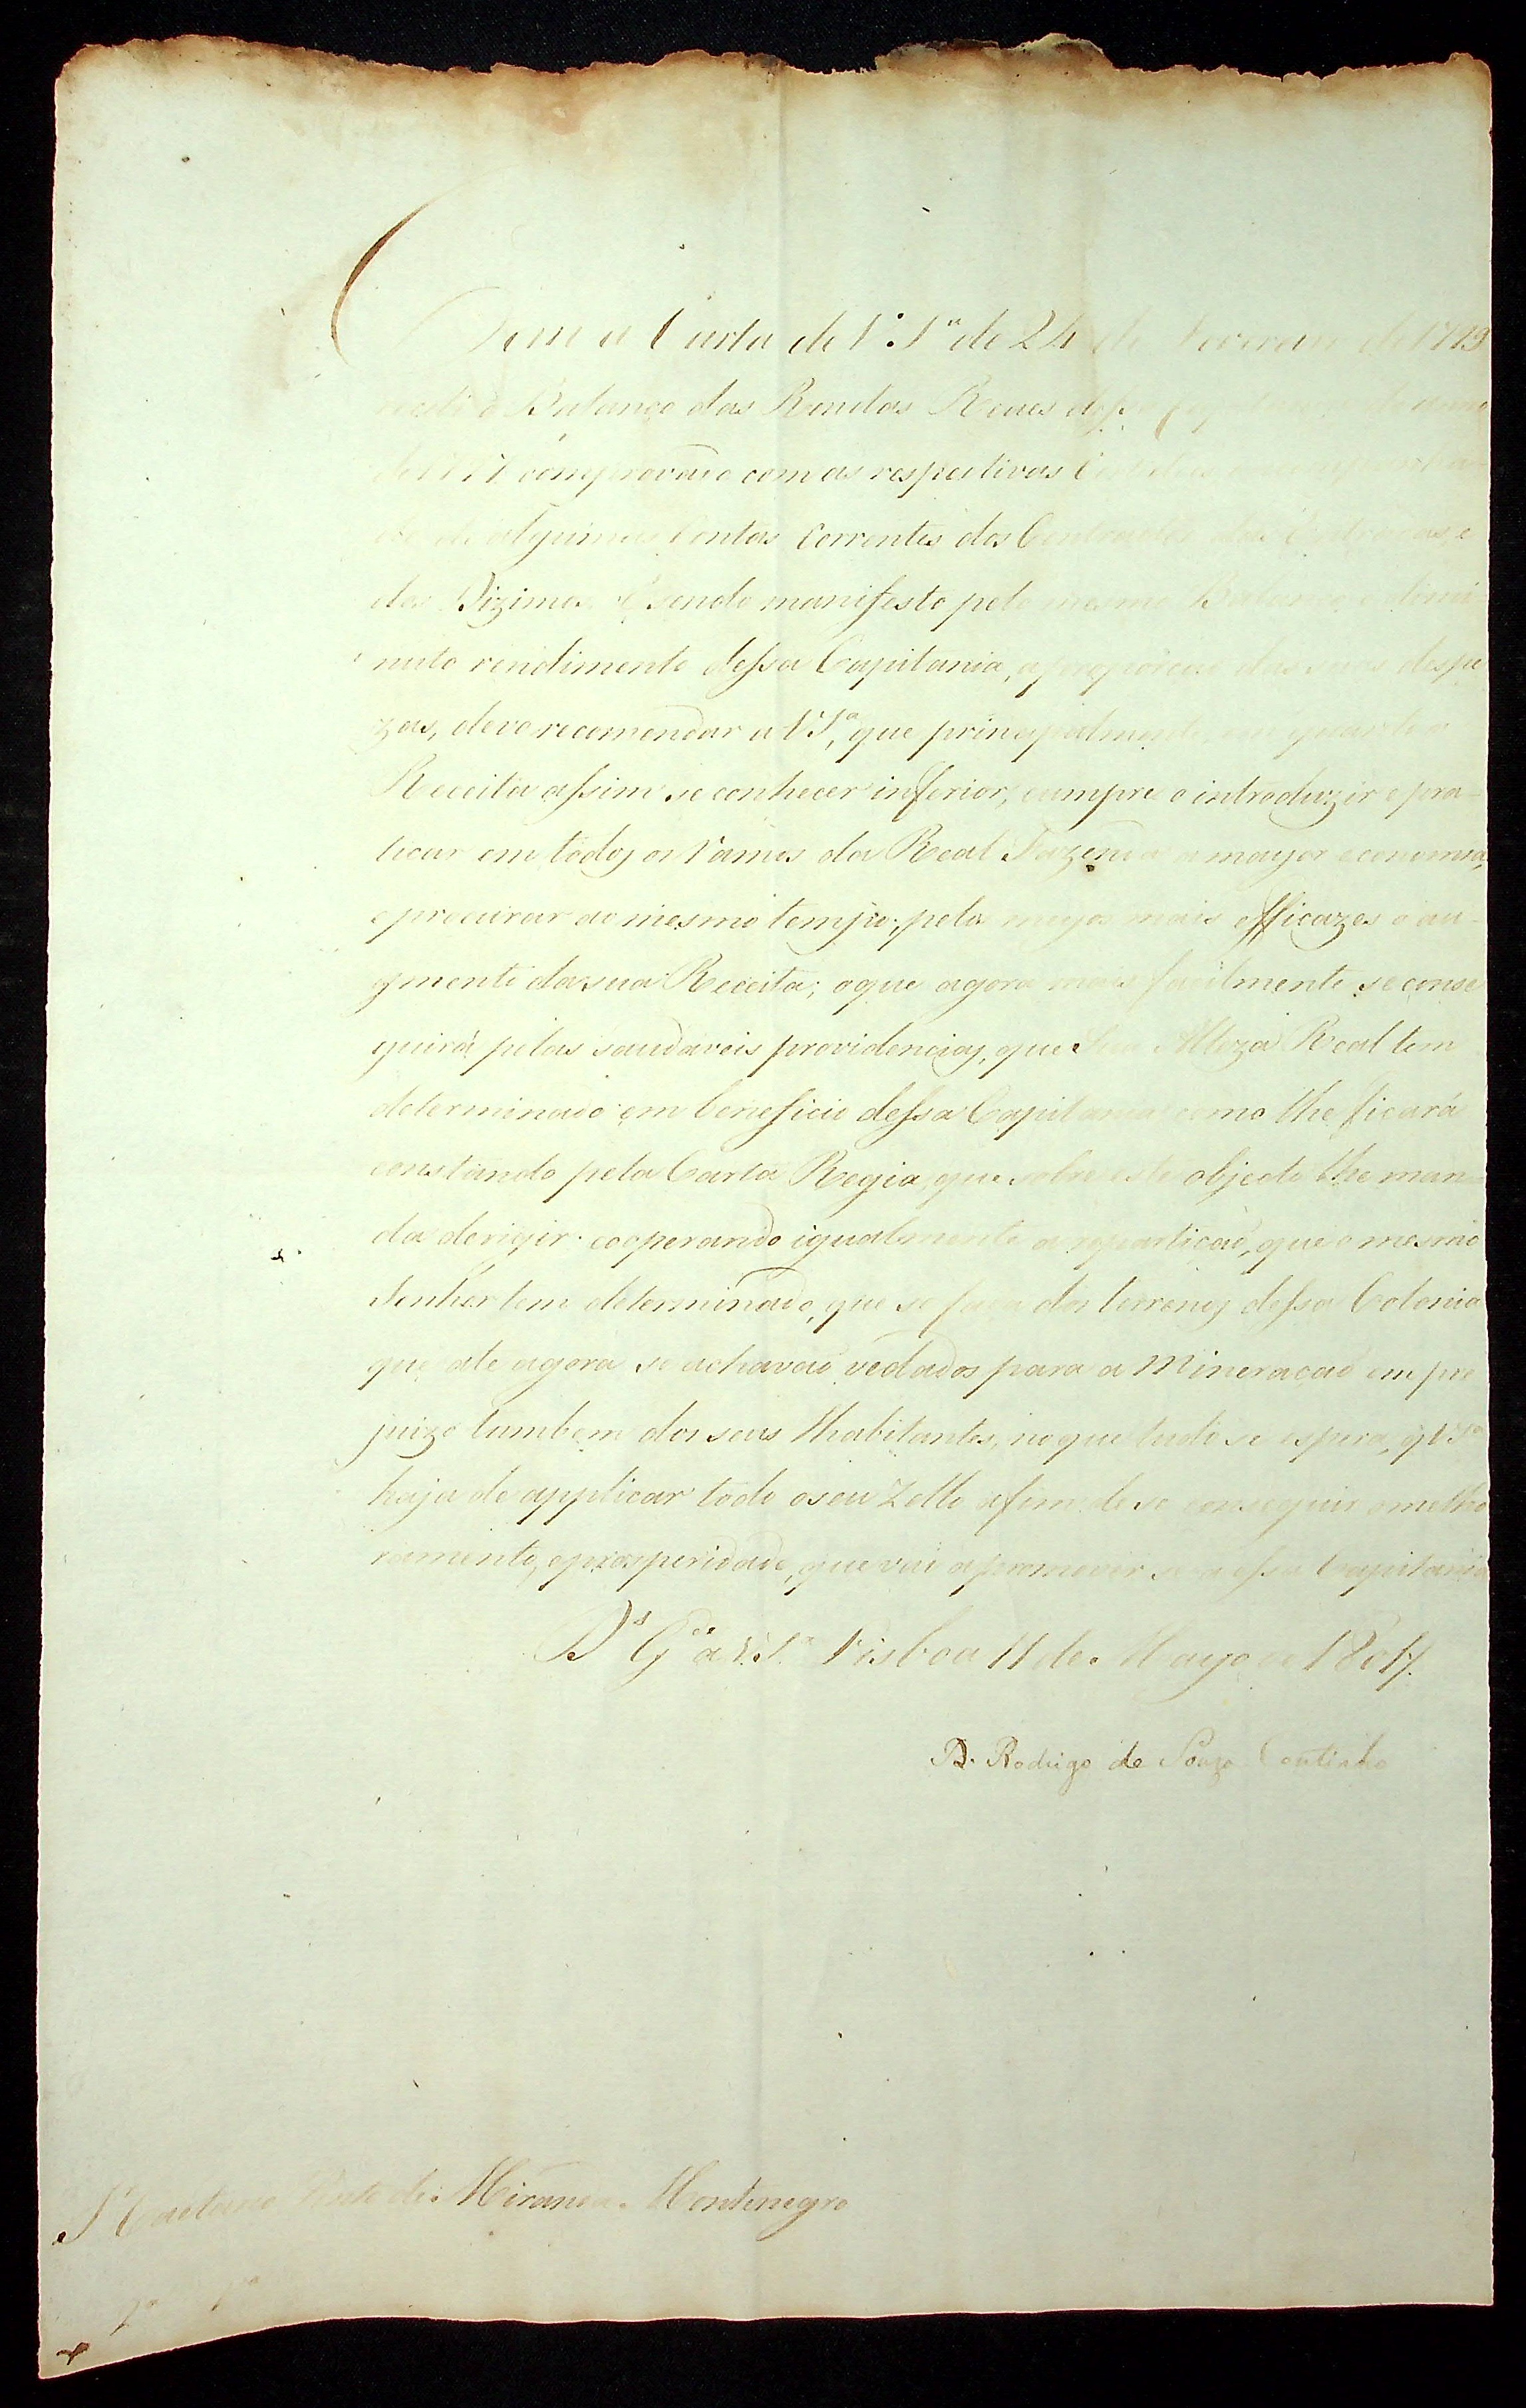 Com a Carta de V. S.ª de 24 de Fevereiro de 1799
recebi o Balanço das Rendas Reaes dessa
comprovado com as respectivas
de algumas Contas Correntes dos Contractos das Entradas, e
dos Dizimos. E sendo manifesto pelo mesmo Balanço o dimi
nuto rendimento dessa Capitania, a proporcao das suas despe
zas, devo recomendar a V S.ª, que principalmente em quanto a
Receita assim se conhecer inferior, cumpre o introduzir e pra-
ticar em todos os Ramos da Real Fazenda a mayor economia,
e procurar ao mesmo tempo, pelos meyos mais efficazes o au-
gmento da sua Receita; o que agora mais facilmente se conse
guirá pelas saudaveis providencias, que Sua Alteza Real tem
determinado em beneficio dessa Capitania como lhe ficará
constando pela Carta Regia, que sobre este objecto lhe man-
da derigir. cooperando igualmente a repartiçaõ, que o mesmo
Senhor tem determinado, que se faça dos terrenos dessa Colonia
que ate agora se achavaõ vedados para a Mineracaõ em pre
juizo tambem dos seus Habitantes, no que tudo se espera, q V S.ª
haja de applicar todo o seu Zello afim de se conseguir o melho
ramento, e prosperidade, que vai a promover se a essa Capitania
D.s G.de a V. S.ª Lisboa 11 de Mayo de 1801.
D. Rodrigo de Souza Coutinho
S.r Caetano Pinto de Miranda Montenegro